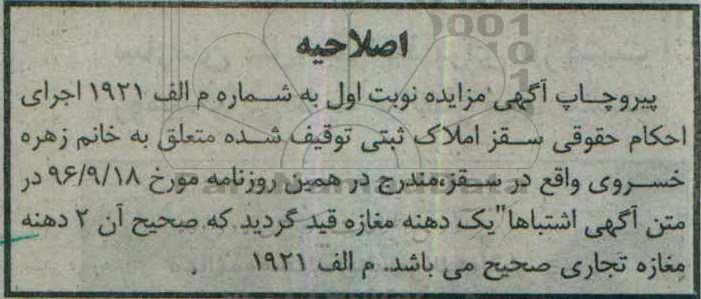 اصلاحیه
پیروچاپ آگهی مزایده نوبت اول به شماره م الف ۱۹۲۱ اجرای
احکام حقوقی سقز املاک ثبتی توقیف شده متعلق به خانم زهره
خسروی واقع در سقز،مندرج در همین روزنامه مورخ ۹۶/۹/۱۸ در
متن آگهی اشتباها"یک دهنه مغازه قید گردید که صحیح آن ۲ دهنه
مغازه تجاری صحیح می باشد. م الف ۱۹۲۱